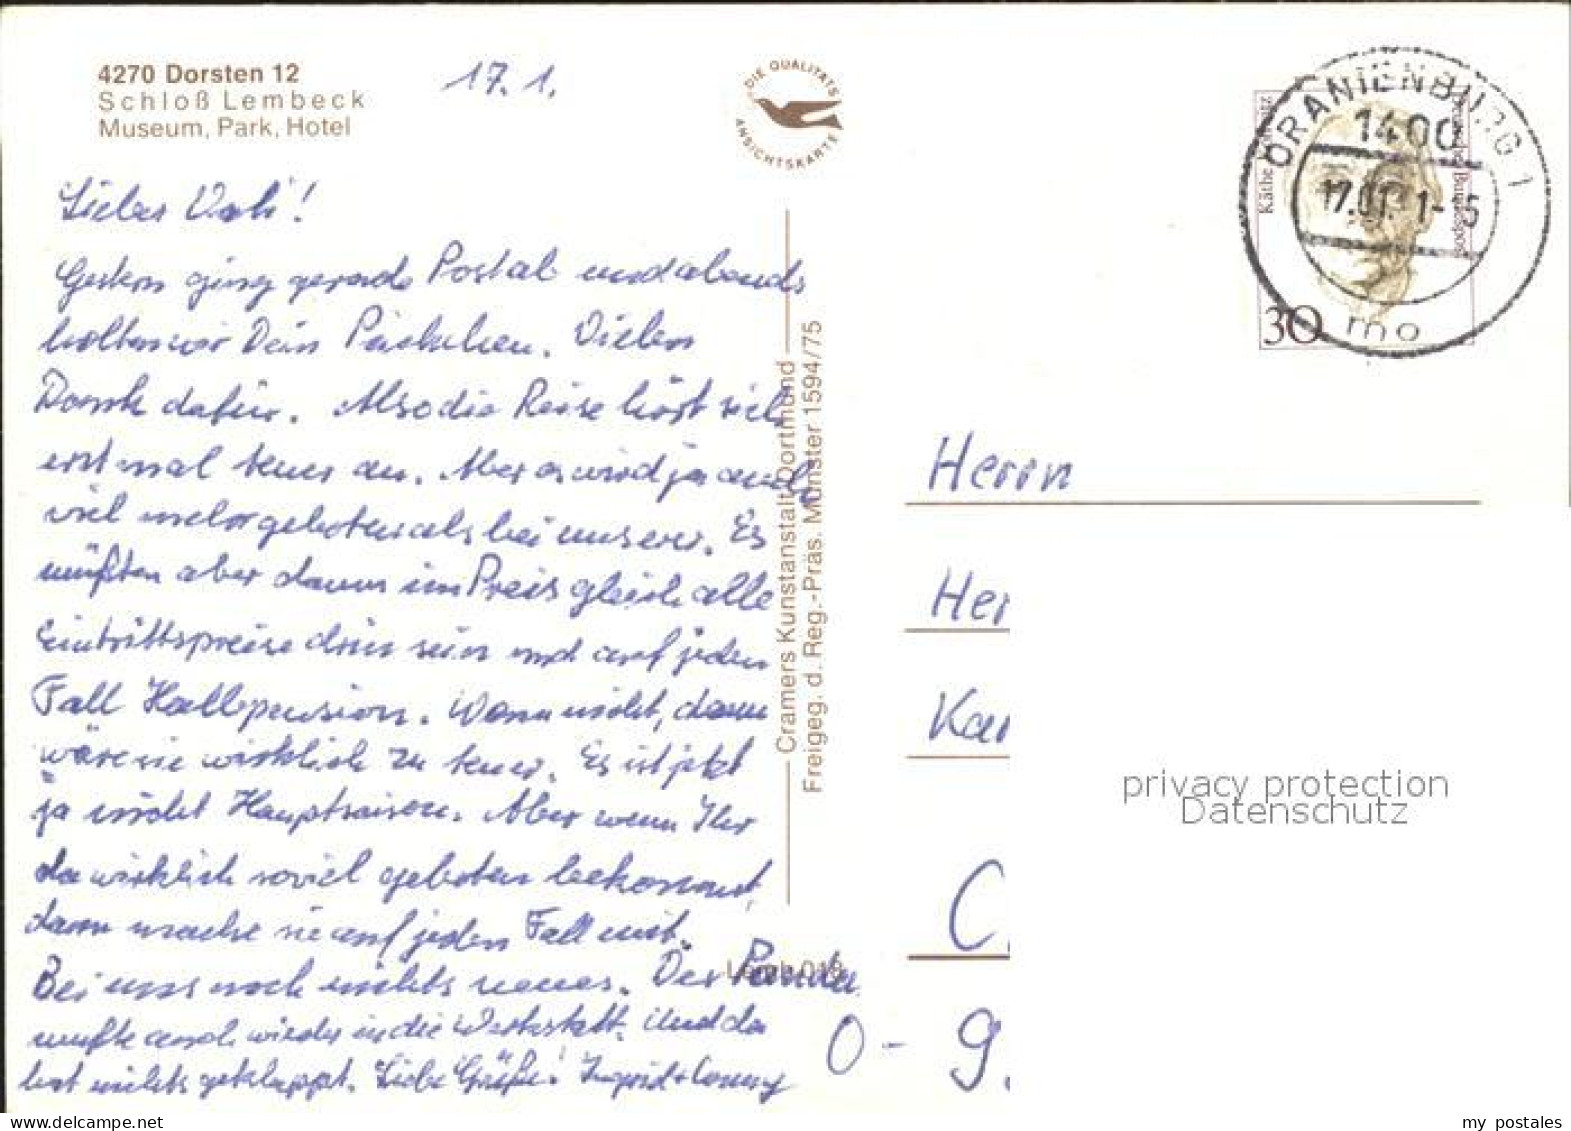 4270 Dorsten 12
Schloß Lembeck
Museum, Park, Hotel
17. 1.
DIE QUALITÄTS
ANSICHTSKARTE
Käthe Kollwitz
Deutsche Bundespost
30
ORANIENBURG 1
1400
17.01. 1-15
mo
Liebes !
Gestern ging gerade Postab und abends
holten wir Dein Päckchen. Vielen
Dank dafür. Also die Reise hört sich
erst mal teuer an. Aber es wird ja auch
viel mehr geboten als bei unserer. Es
müßten aber dann im Preis gleich alle
Eintrittspreise drin sein und auf jeden
Fall Halbpension. Wenn nicht, dann
wäre sie wirklich zu teuer. Es ist jetzt
ja nicht Hauptsaison. Aber wenn Ihr
da wirklich soviel geboten bekommt,
dann macht sie auf jeden Fall mit.
Bei uns noch nichts neues. Der
mußte auch wieder in die Werkstatt. Und da
hat nichts geklappt. Liebe Grüße! Ingrid + Conny
Cramers Kunstanstalt Dortmund
Freigeg. d. Reg.-Präs. Münster 1594/75
Herrn
Her
Kar
C.
O - 9.
privacy protection
Datenschutz
www.delcampe.net
my_postales